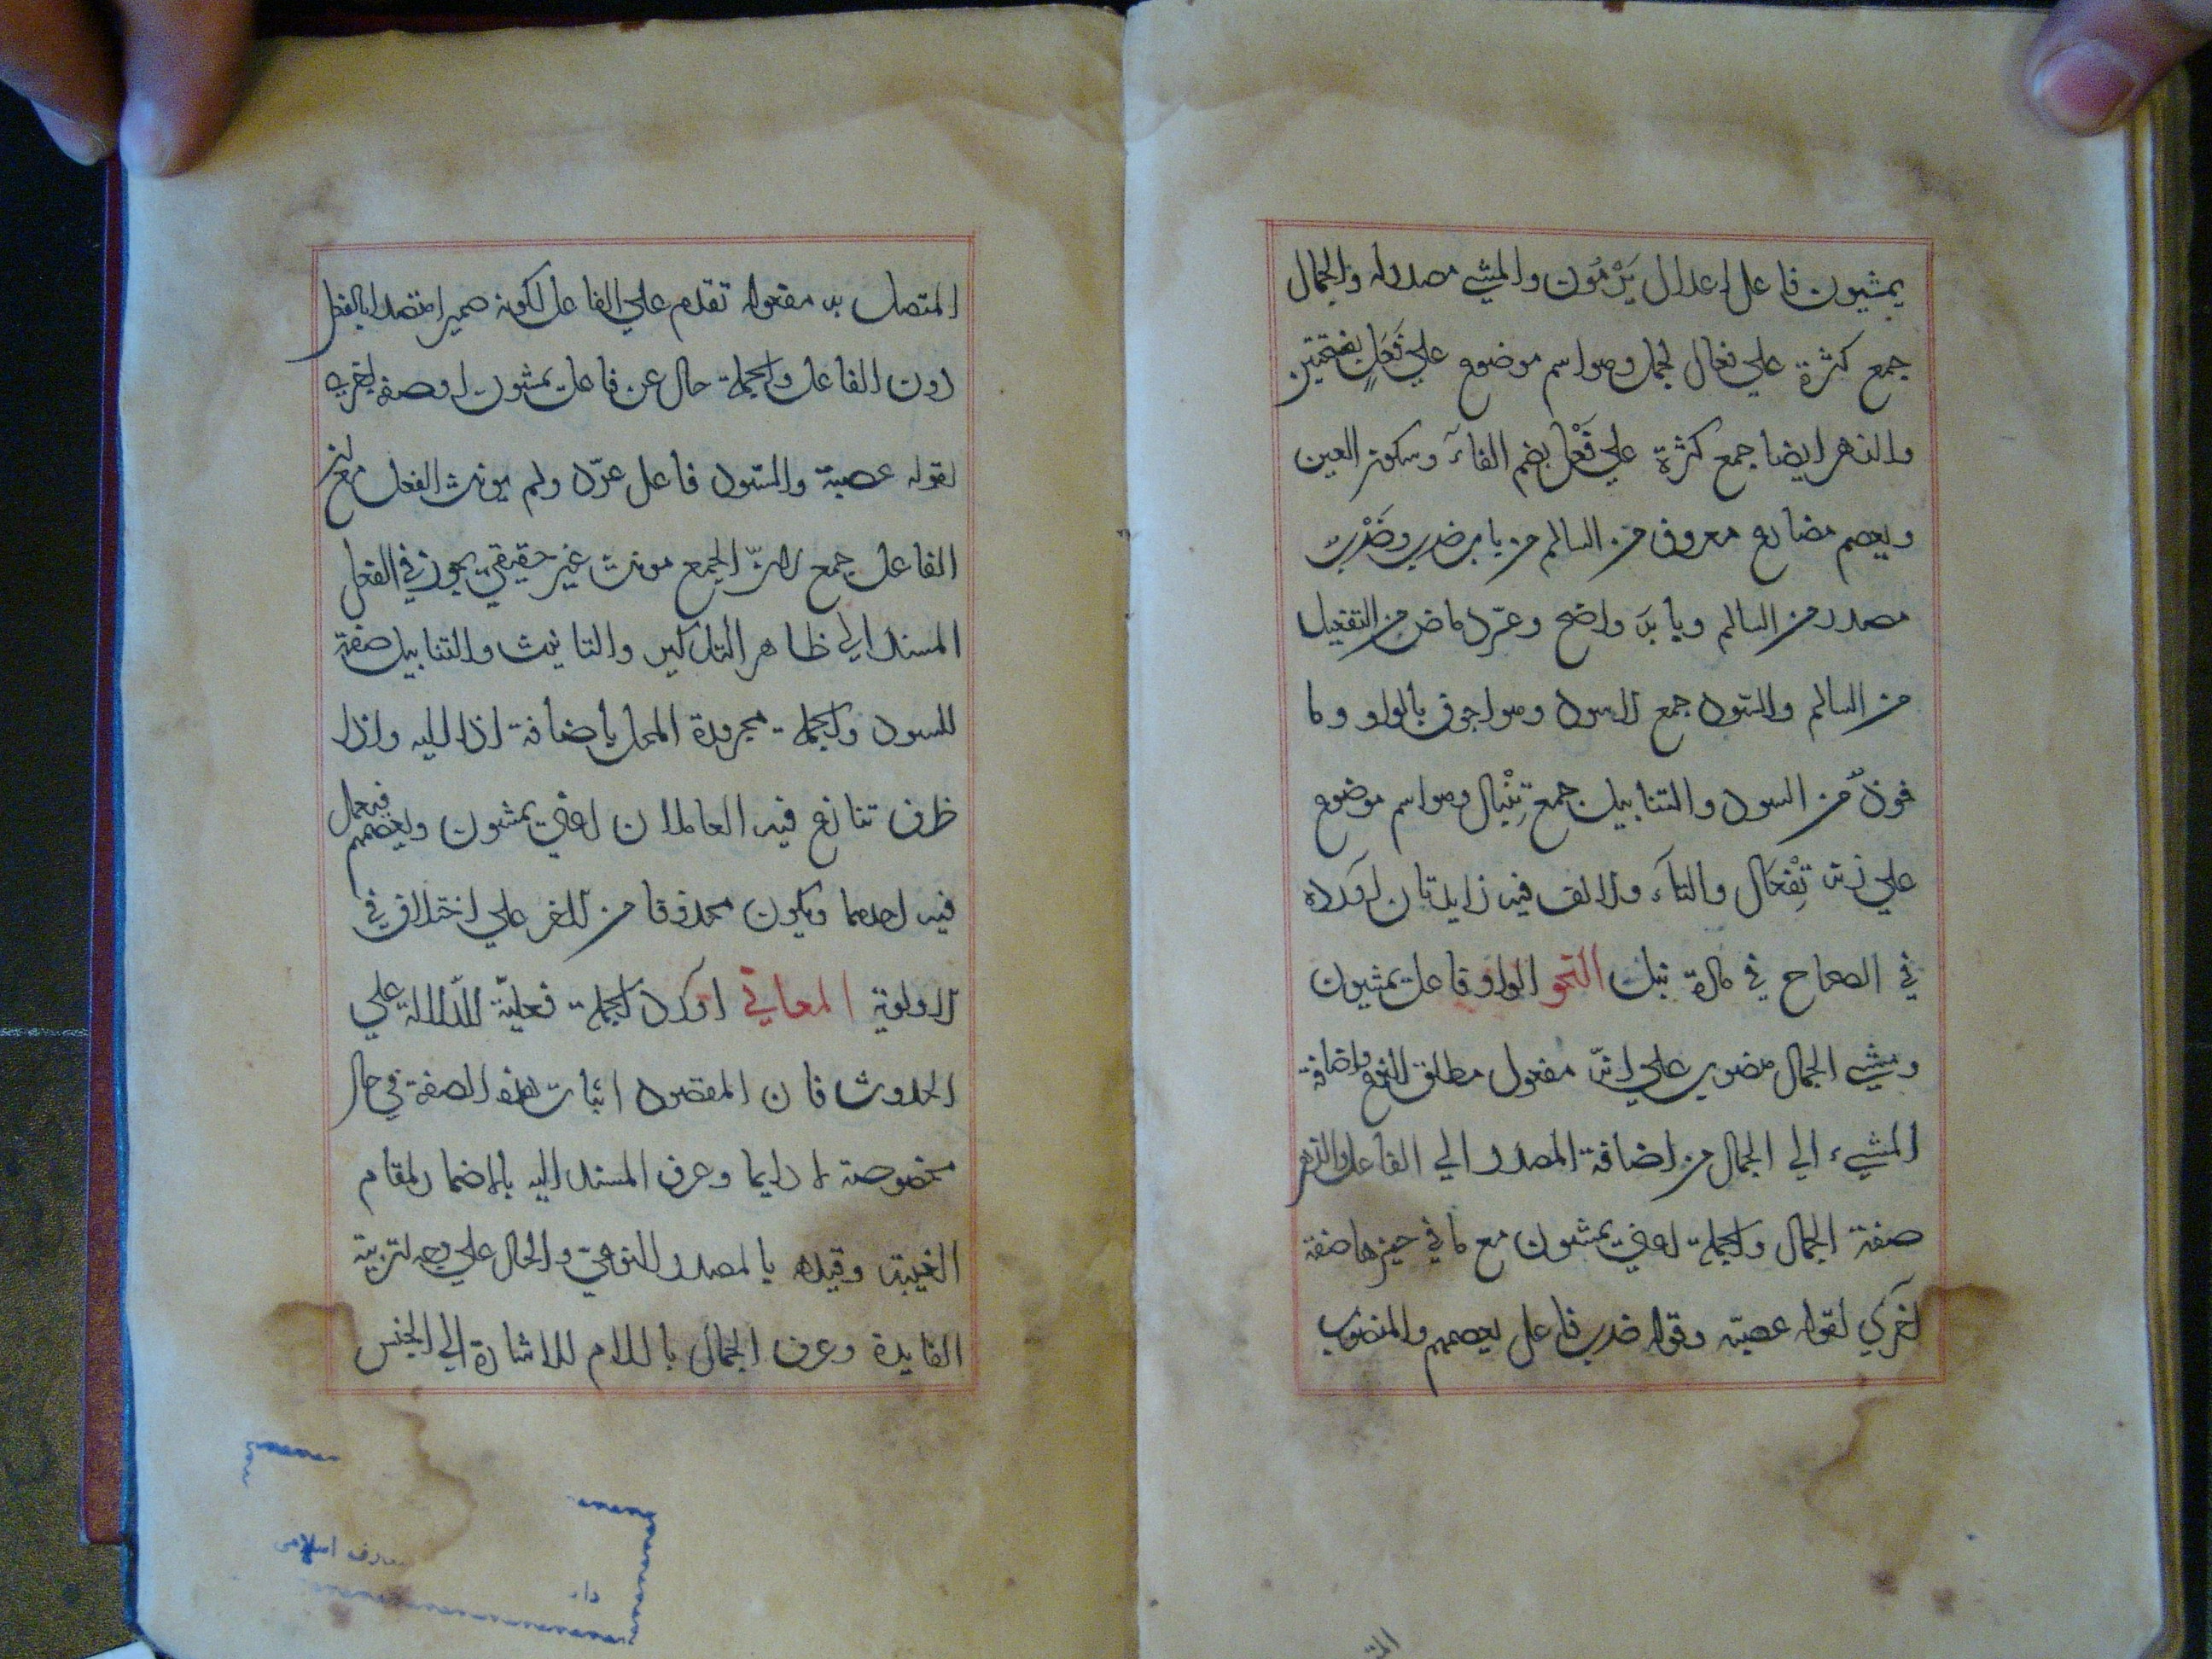 يمشيون فاعل اعلال يَرْمُون والمشي مصدر له والجمال
جمع كثرة علي فعال لجمل وهو اسم موضوع علي فَعَلٍ بفتحتين
والزهر ايضا جمع كثرة علي فُعْل بضم الفآء وسكون العين
ويعصم مضارع معروف من السالم من باب ضرب وضَرْب
مصدر من السالم وبابه واضح وعرّد ماض من التفعيل
من السالم والسود جمع الاسود وهو اجوف بالواو وما
خوذ من السود والتنابيل جمع تِنْبال وهو اسم موضوع
علي زنة تِفْعَال والتآء والالف فيه زايدتان اورده
في الصحاح في مادة نبل النحو الواو فاعل يمشيون
ومشي الجمال منصوب علي انّه مفعول مطلق للنوع واضافة
المشيء الي الجمال من اضافة المصدر الي الفاعل والزهر
صفة الجمال والجملة اعني يمشون مع ما في حيزها صفة
اخري لقوله عصبة وقوله ضرب فاعل يعصمهم والمنصوب
المتصل به مفعوله تقدم علي الفاعل لكونه ضميرا متصلا بالفعل
دون الفاعل والجملة حال عن فاعل يمشون او صفة اخري
لقوله عصبة والسود فاعل عرّد ولم يونث الفعل مع ان
الفاعل جمع لانّ الجمع مونث غير حقيقي يجوز في الفعل
المسند الي ظاهره التذكير والتانيث والتنابيل صفة
للسود والجملة مجرورة المحل باضافة اذا اليه واذا
ظرف تنازع فيه العاملان اعني يمشون ويعصمهم فيعمل
فيه احدهما ويكون محذوفا من الاخر علي اختلاف في
الاولوية المعاني اورد الجملة فعليّة للدّلالة علي
الحدوث فان المقصود اثبات هذه الصفة في حال
مخصوصة لا دايما وعرف المسند اليه بالاضمار لمقام
الغيبة وقيده بالمصدر النوعيّ والحال علي وجه لتربية
الفايدة وعرف الجمال باللام للاشارة الي الجنس
معارف اسلامی